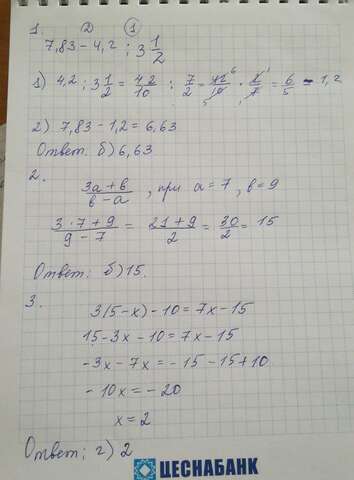 1 2) (1)
7,83 - 4,2 : 3 1/2
1) 4,2 : 3 1/2 = 42/10 : 7/2 = 42/10 · 2/7 = 6/5 = 1,2
2) 7,83 - 1,2 = 6,63
Ответ б) 6,63
2.
3a+в/в-a , при a = 7, в = 9
3·7+9/9-7 = 21+9/2 = 30/2 = 15
Ответ: б) 15.
3.
3(5-x) - 10 = 7x - 15
15 - 3x - 10 = 7x - 15
-3x - 7x = -15 - 15 + 10
-10x = -20
x = 2
Ответ: г) 2
ЦЕСНАБАНК